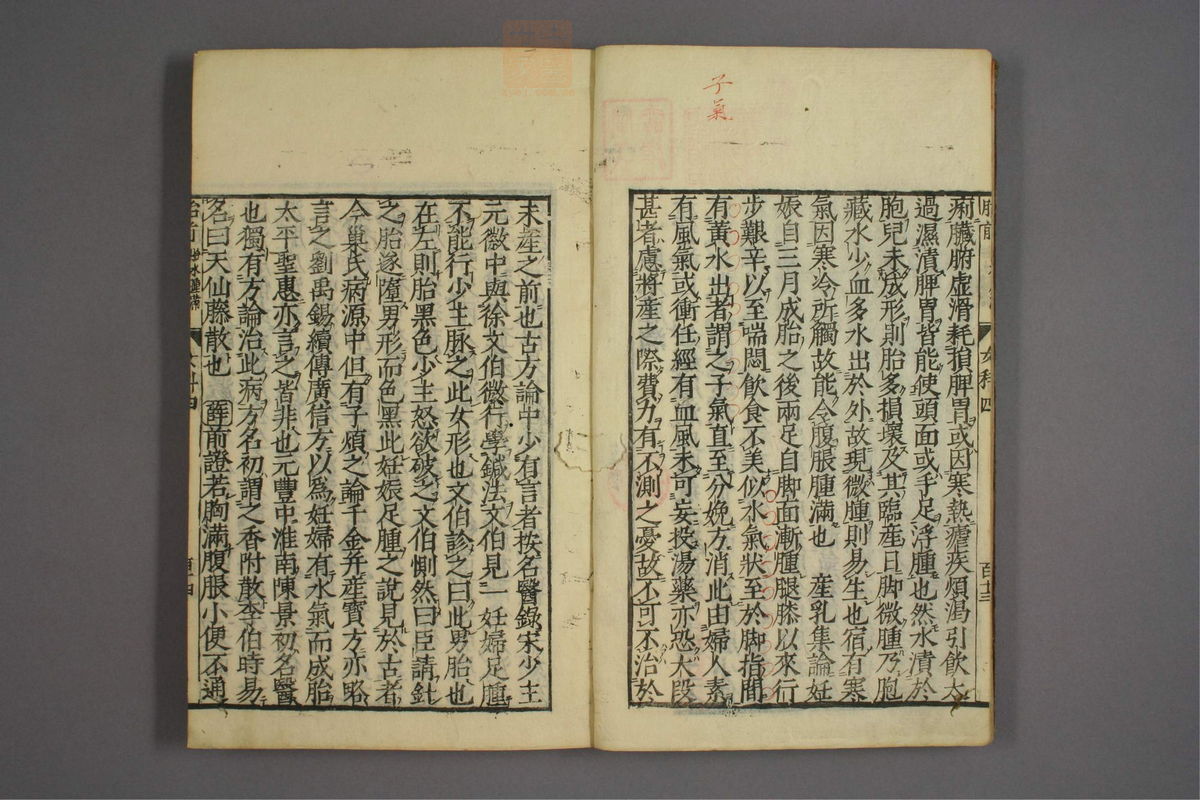 子氣
痢臟腑虛滑耗損脾胃或因寒熱瘧疾煩渴引飲太
過濕漬脾胃皆能使頭面或手足浮腫也然水漬於
胞兒未成形則胎多損壞及其臨産日脚微腫乃胞
藏水少血多水出於外故現微腫則易生也宿有寒
氣因寒冷所觸故能令腹脹腫滿也 産乳集論妊
娠自三月成胎之後兩足自脚面漸腫腿膝以來行
步艱辛以至喘悶飲食不美似水氣狀至於脚指間
有黃水出者謂之子氣直至分娩方消此由婦人素
有風氣或衝任經有血風未可妄投湯藥亦恐大段
甚者慮將産之際費力有不測之憂故不可不治於
女科四
百十三
未産之前也古方論中少有言者按名醫錄宋少主
元徽中與徐文伯微行學鍼法文伯見一妊婦足腫
不能行少主脉之此女形也文伯診之曰此男胎也
在左則胎黑色少主怒欲破之文伯惻然曰臣請針
之胎遂墮男形而色黑此妊娠足腫之說見於古者
今巢氏病源中但有子煩之論千金幷産寶方亦畧
言之劉禹錫續傳廣信方以爲妊婦有水氣而成胎
太平聖惠亦言之皆非也元豐中淮南陳景初名醫
也獨有方論治此病方名初謂之香附散李伯時易
名曰天仙藤散也 薛前證若胸滿腹脹小便不通